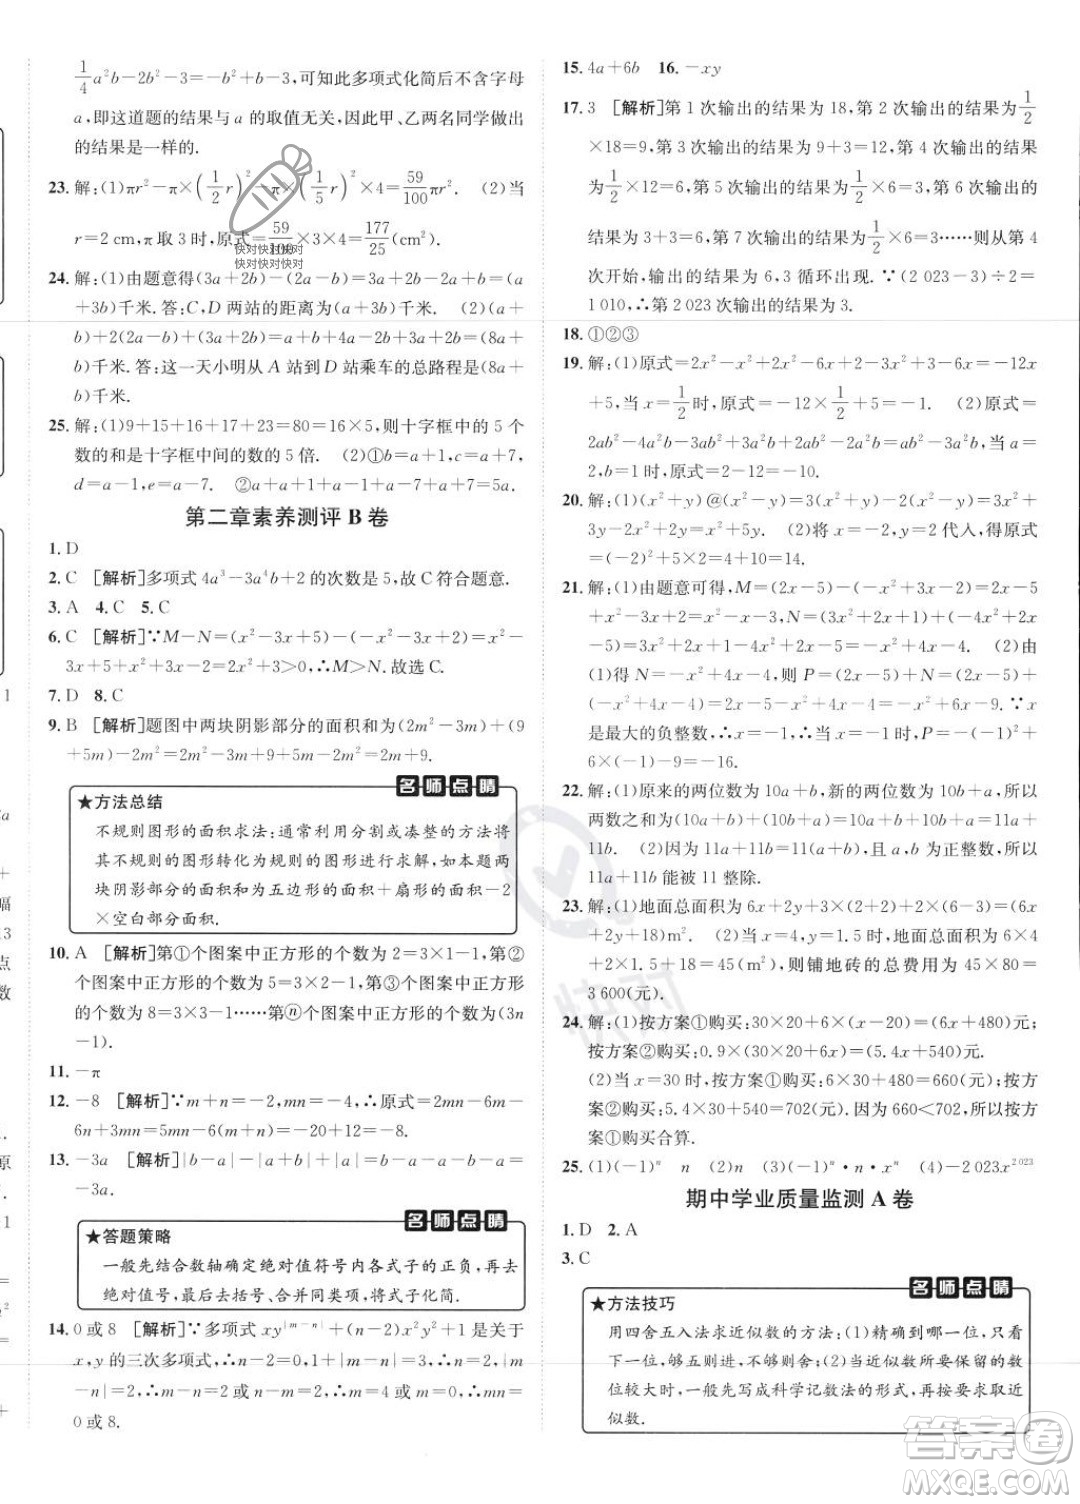 1/4a²b－2b²－3＝－b²＋b－3,可知此多项式化简后不含字母
a,即这道题的结果与 a 的取值无关,因此甲、乙两名同学做出
的结果是一样的.
23. 解:(1)πr²－π×(1/2r)²－π×(1/5r)²×4＝59/100πr². (2)当
r＝2 cm,π 取 3 时,原式＝59/100×3×4＝177/25(cm²).
24. 解:(1)由题意得(3a＋2b)－(2a＋b)＝3a＋2b－2a－b＝(a＋
b)千米.答:C,D 两站的距离为(a＋b)千米. (2)(2a＋
b)＋2(2a－b)＋(3a＋2b)＝2a＋b＋4a－2b＋3a＋2b＝
千米.答:这一天小明从 A 站到 D 站乘车的总路程是
千米.
25. 解:(1)9＋15＋16＋17＋23＝80＝16×5,则十字框中的 5 个
数的和是十字框中间的数的 5 倍. (2)①b＝a＋1,c＝a＋7,
d＝a－1,e＝a－7. ②a＋a＋1＋a＋7＋a－1＋a－7＝5a.
第二章素养测评 B 卷
1. D
2. C [解析]多项式 4a³－3a⁴b＋2 的次数是 5,故 C 符合题意.
3. A 4. C 5. C
6. C [解析]∵M－N＝(x²－3x＋5)－(－x²－3x＋2)＝x²－
3x＋5＋x²＋3x－2＝2x²＋3＞0,∴M＞N.故选 C.
7. D 8. C
9. B [解析]题图中两块阴影部分的面积和为(2m²－3m)＋(9
＋5m)－2m²＝2m²－3m＋9＋5m－2m²＝2m＋9.
名师点睛
★方法总结
不规则图形的面积求法:通常利用分割或凑整的方法将
其不规则的图形转化为规则的图形进行求解,如本题两
块阴影部分的面积和为五边形的面积＋扇形的面积－2
×空白部分面积.
10. A [解析]第①个图案中正方形的个数为 2＝3×1－1,第②
个图案中正方形的个数为 5＝3×2－1,第③个图案中正方形
的个数为 8＝3×3－1……第ⓝ个图案中正方形的个数为(3n
－1).
11. －π
12. －8 [解析]∵m＋n＝－2,mn＝－4,∴原式＝2mn－6m－
6n＋3mn＝5mn－6(m＋n)＝－20＋12＝－8.
13. －3a [解析]|b－a|－|a＋b|＋|－a|＝b－a－a－b－a＝
－3a.
名师点睛
★答题策略
一般先结合数轴确定绝对值符号内各式子的正负,再去
绝对值号,最后去括号、合并同类项,将式子化简.
14. 0 或 8 [解析]∵多项式 xy|m－n|＋(n－2)x²y²＋1 是关于
x,y 的三次多项式,∴n－2＝0,1＋|m－n|＝3,∴n＝2,|m
－n|＝2,∴m－n＝2 或 n－m＝2,∴m＝4 或 m＝0,∴mn＝
0 或 8.
15. 4a＋6b 16. －xy
17. 3 [解析]第 1 次输出的结果为 18,第 2 次输出的结果为 1/2
×18＝9,第 3 次输出的结果为 9＋3＝12,第 4 次输出的结果
为 1/2×12＝6,第 5 次输出的结果为 1/2×6＝3,第 6 次输出的
结果为 3＋3＝6,第 7 次输出的结果为 1/2×6＝3……则从第 4
次开始,输出的结果为 6,3 循环出现.∵(2 023－3)÷2＝
1 010,∴第 2 023 次输出的结果为 3.
18. ①②③
19. 解:(1)原式＝2x²－x²＋2x－2x²－6x＋2－3x²－6x＋3＝－12x
＋5,当 x＝1/2时,原式＝－12×1/2＋5＝－1. (2)原式＝
2ab²－4a²b－2ab²＋3a²b＋4a²b＝－ab²＋3a²b,当 a＝
－2,b＝1 时,原式＝－(－2)×1²＋3×(－2)²×1＝14.
20. 解:(1)(x²＋y)@(x²－y)＝2(x²＋y)－(x²－y)＝
x²＋3y. (2)将 x＝－2,y＝2 代入,得原式
＝(－2)²＋5×2＝4＋10＝14.
21. 解:(1)由题意可得,M＝(2x－5)－(－x²＋3x－1)＝2x－5
＋x²－3x＋1＝x²－x－4,N＝(3x²＋2x＋1)＋(－4x²＋2x－5)＝
3x²＋2x＋1－4x²＋2x－5＝－x²＋4x－4. (2)由
(1)得 N＝－x²＋4x－4,则 P＝(2x－5)＋(－x²＋4x
－4)＝2x－5－x²＋4x－4＝－x²＋6x－9.∵x
是最大的负整数,∴x＝－1,∴P＝－(－1)²＋
6×(－1)－9＝－16.
22. 解:(1)原来的两位数为 10a＋b,新的两位数为 10b＋a,所以
两数之和为(10a＋b)＋(10b＋a)＝10a＋b＋10b＋a＝11a＋
11b. (2)因为 11a＋11b＝11(a＋b),且 a,b 都为整数,所以
11a＋11b 能被 11 整除.
23. 解:(1)地面总面积为 6x＋2y＋3×(2＋2)＋2×(6－3)＝(6x＋
2y＋18)m². (2)当 x＝4,y＝1.5 时,地面总面积为 6×4＋
2×1.5＋18＝45(m²),则铺地砖的总费用为 45×80＝
3 600(元).
24. 解:(1)按方案①购买:30×20＋6×(x－20)＝(6x＋480)元;
按方案②购买:0.9×(30×20＋6x)＝(5.4x＋540)元.
(2)当 x＝30 时,按方案①购买:6×30＋480＝660(元);按方
案②购买:5.4×30＋540＝702(元).因为 660＜702,所以按方
案①购买合算.
25. (1)(－1)ⁿ n (2)n (3)(－1)ⁿ·n·xⁿ (4)－2 023x²⁰²³
期中学业质量监测 A 卷
1. D 2. A
3. C
名师点睛
★方法技巧
用四舍五入法求近似数的方法:(1)精确到哪一位,只看
下一位,够五则进,不够则舍;(2)当近似数所要保留的数
位较大时,一般先写成科学记数法的形式,再按要求取近
似数.
快对快对快对
快对快对快对
快对
答案圈
MXQE.COM